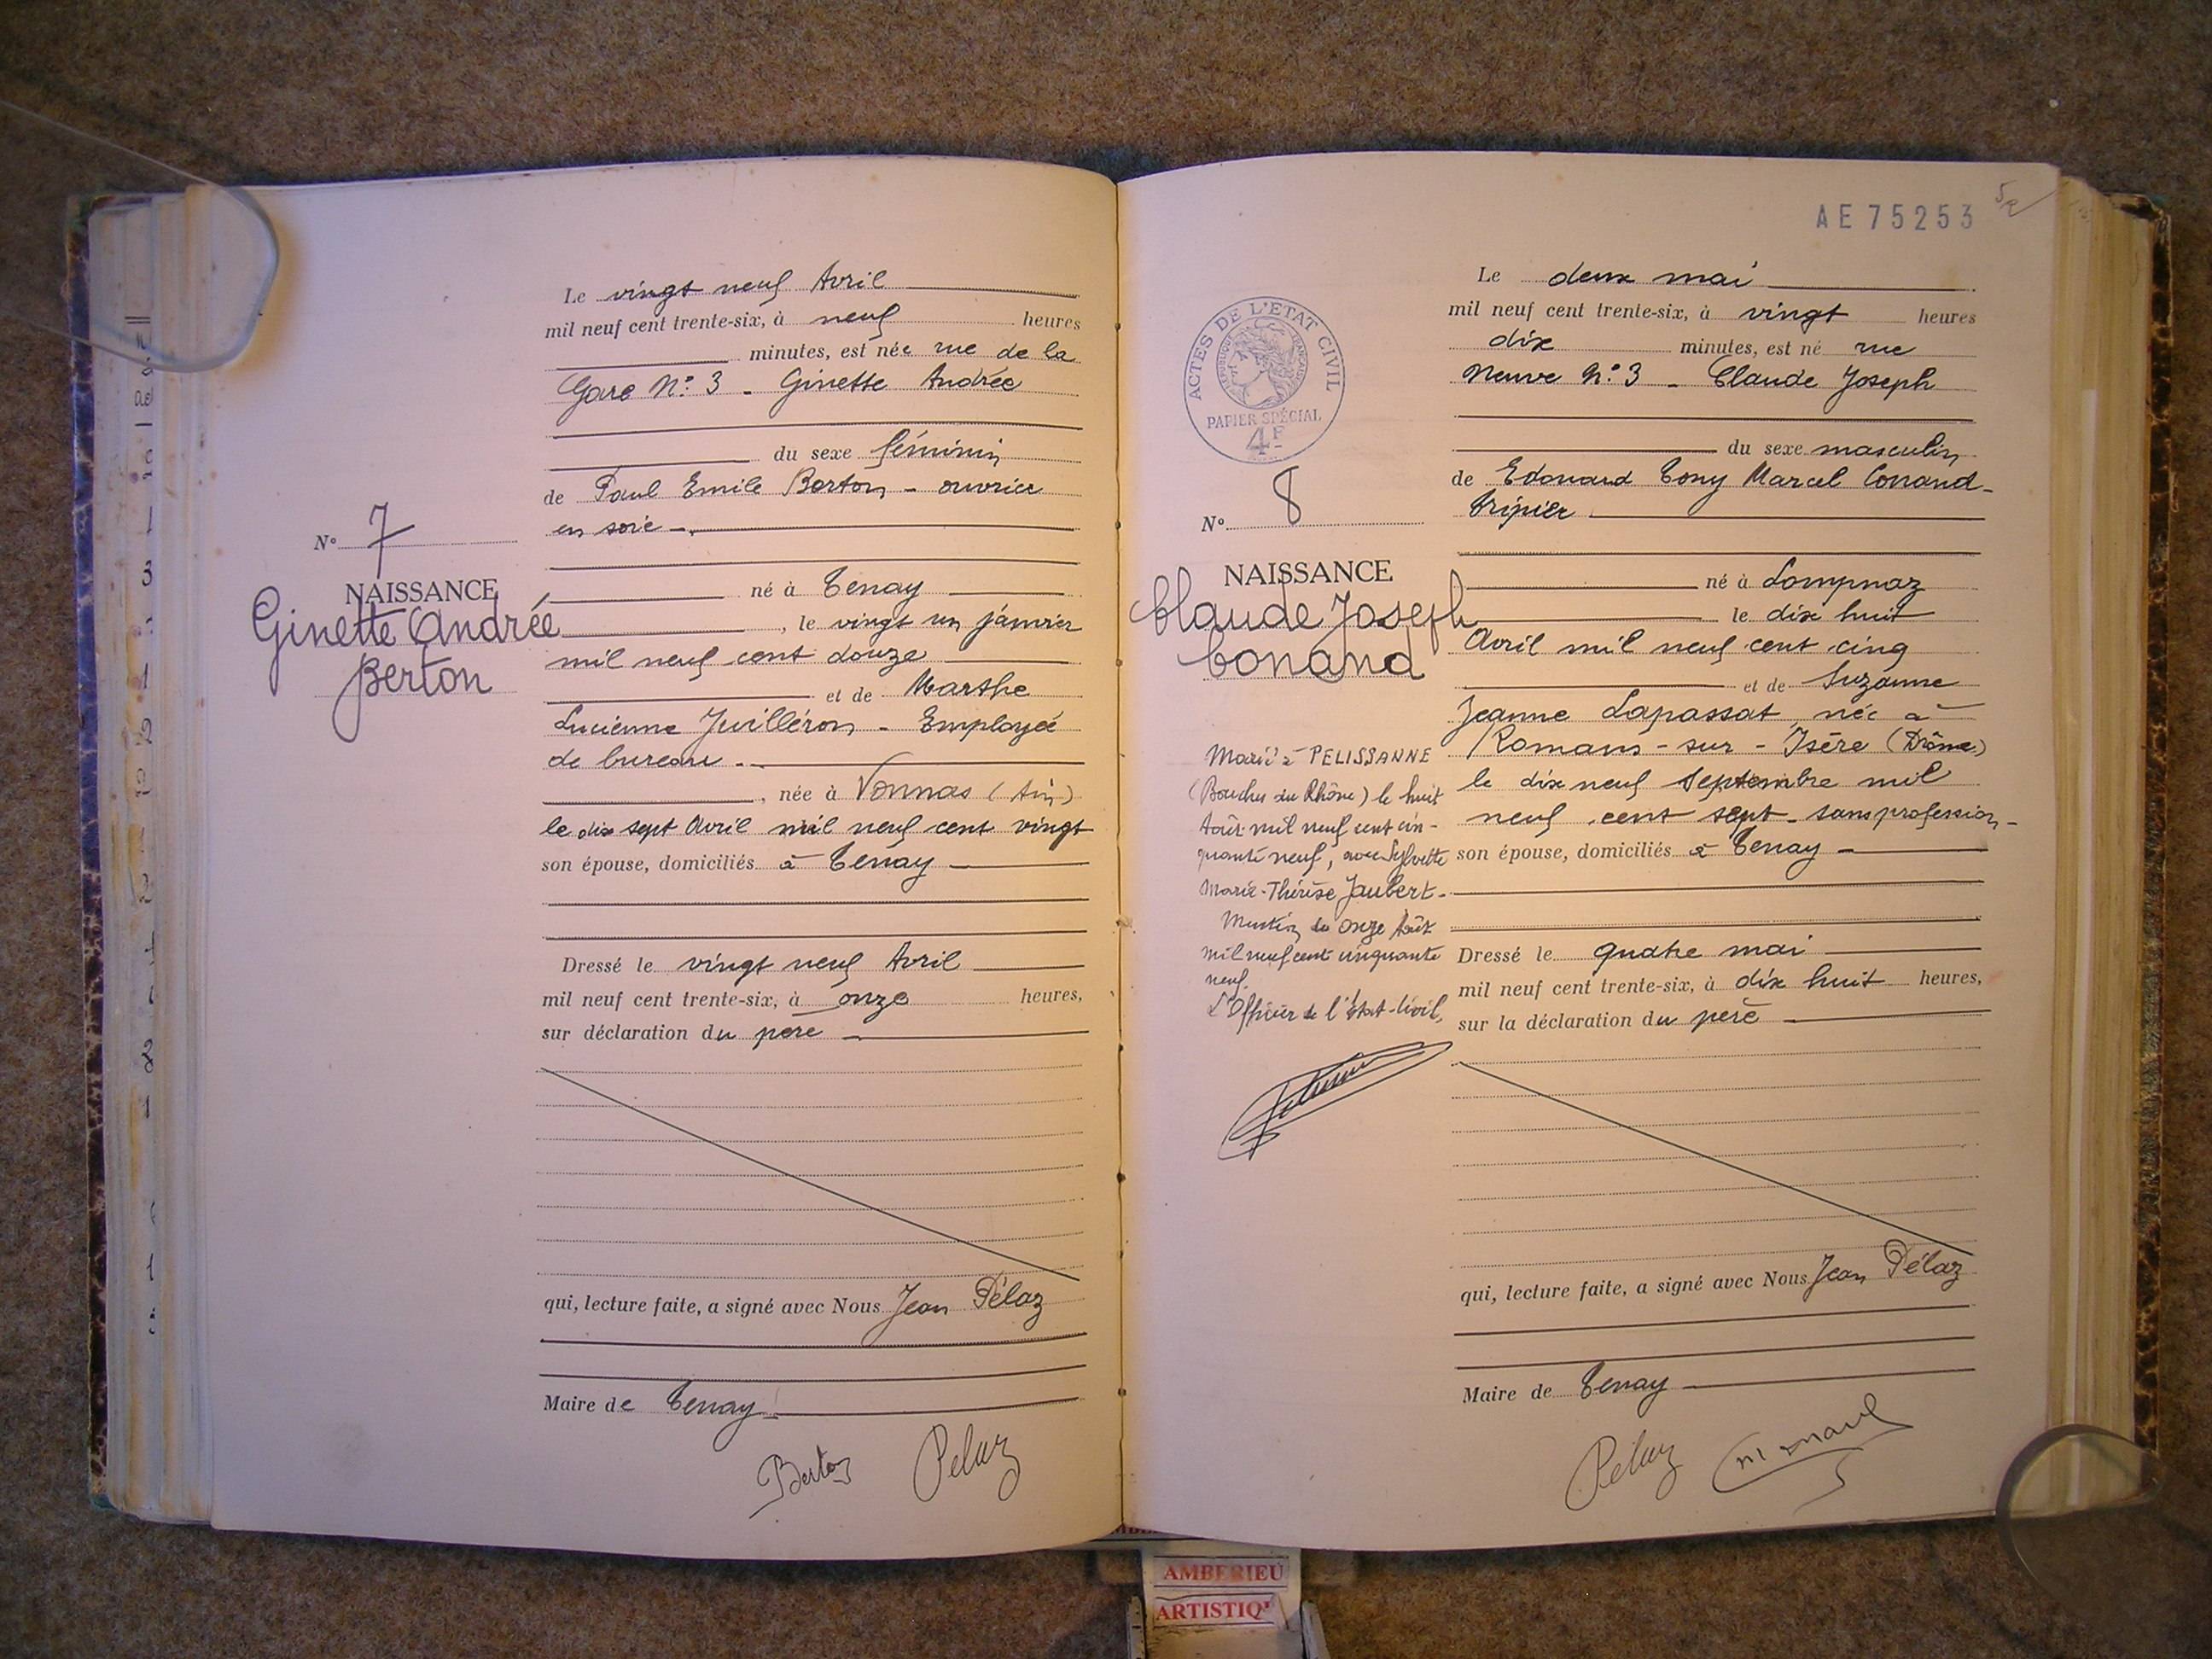 Le vingt neuf Avril
mil neuf cent trente-six, à neuf heures
minutes, est née rue de la
Gare N° 3 - Ginette Andrée
du sexe féminin
de Paul Emile Berton - ouvrier
en soie -.
né à Tenay
, le vingt un janvier
mil neuf cent douze
et de Marthe
Lucienne Juilléron - Employée
de bureau -.
, née à Vonnas (Ain)
le dix sept Avril mil neuf cent vingt
son épouse, domiciliés à Tenay -
Dressé le vingt neuf Avril
mil neuf cent trente-six, à onze heures,
sur déclaration du père -
qui, lecture faite, a signé avec Nous Jean Pélaz
Maire de Tenay -
Berton Pelaz
N° 7
NAISSANCE
Ginette Andrée
Berton
AE 75253
52
Le deux mai
mil neuf cent trente-six, à vingt heures
dix minutes, est né rue
Neuve N° 3 - Claude Joseph
du sexe masculin
de Edouard Tony Marcel Conand -
tripier
né à Lompnaz
le dix huit
Avril mil neuf cent cinq
et de Suzanne
Jeanne Lapassat, née à
Romans - sur - Isère (Drôme)
le dix neuf Septembre mil
neuf cent sept - sans profession -
son épouse, domiciliés à Tenay -
Dressé le quatre mai
mil neuf cent trente-six, à dix huit heures,
sur la déclaration du père -
qui, lecture faite, a signé avec Nous Jean Pélaz
Maire de Tenay -
Pelaz
ACTES DE L'ETAT CIVIL
REPUBLIQUE FRANCAISE
PAPIER SPÉCIAL
4F
N° 8
NAISSANCE
Claude Joseph
Conand
Marié à PELISSANNE
(Bouches du Rhône) le huit
Août mil neuf cent cin-
quante neuf, avec Sylvette
Marie-Thérèse Jaubert -
Mention du onze Août
mil neuf cent cinquante
neuf.
L'Officier de l'Etat-Civil,
AMBERIEU
ARTISTIQ